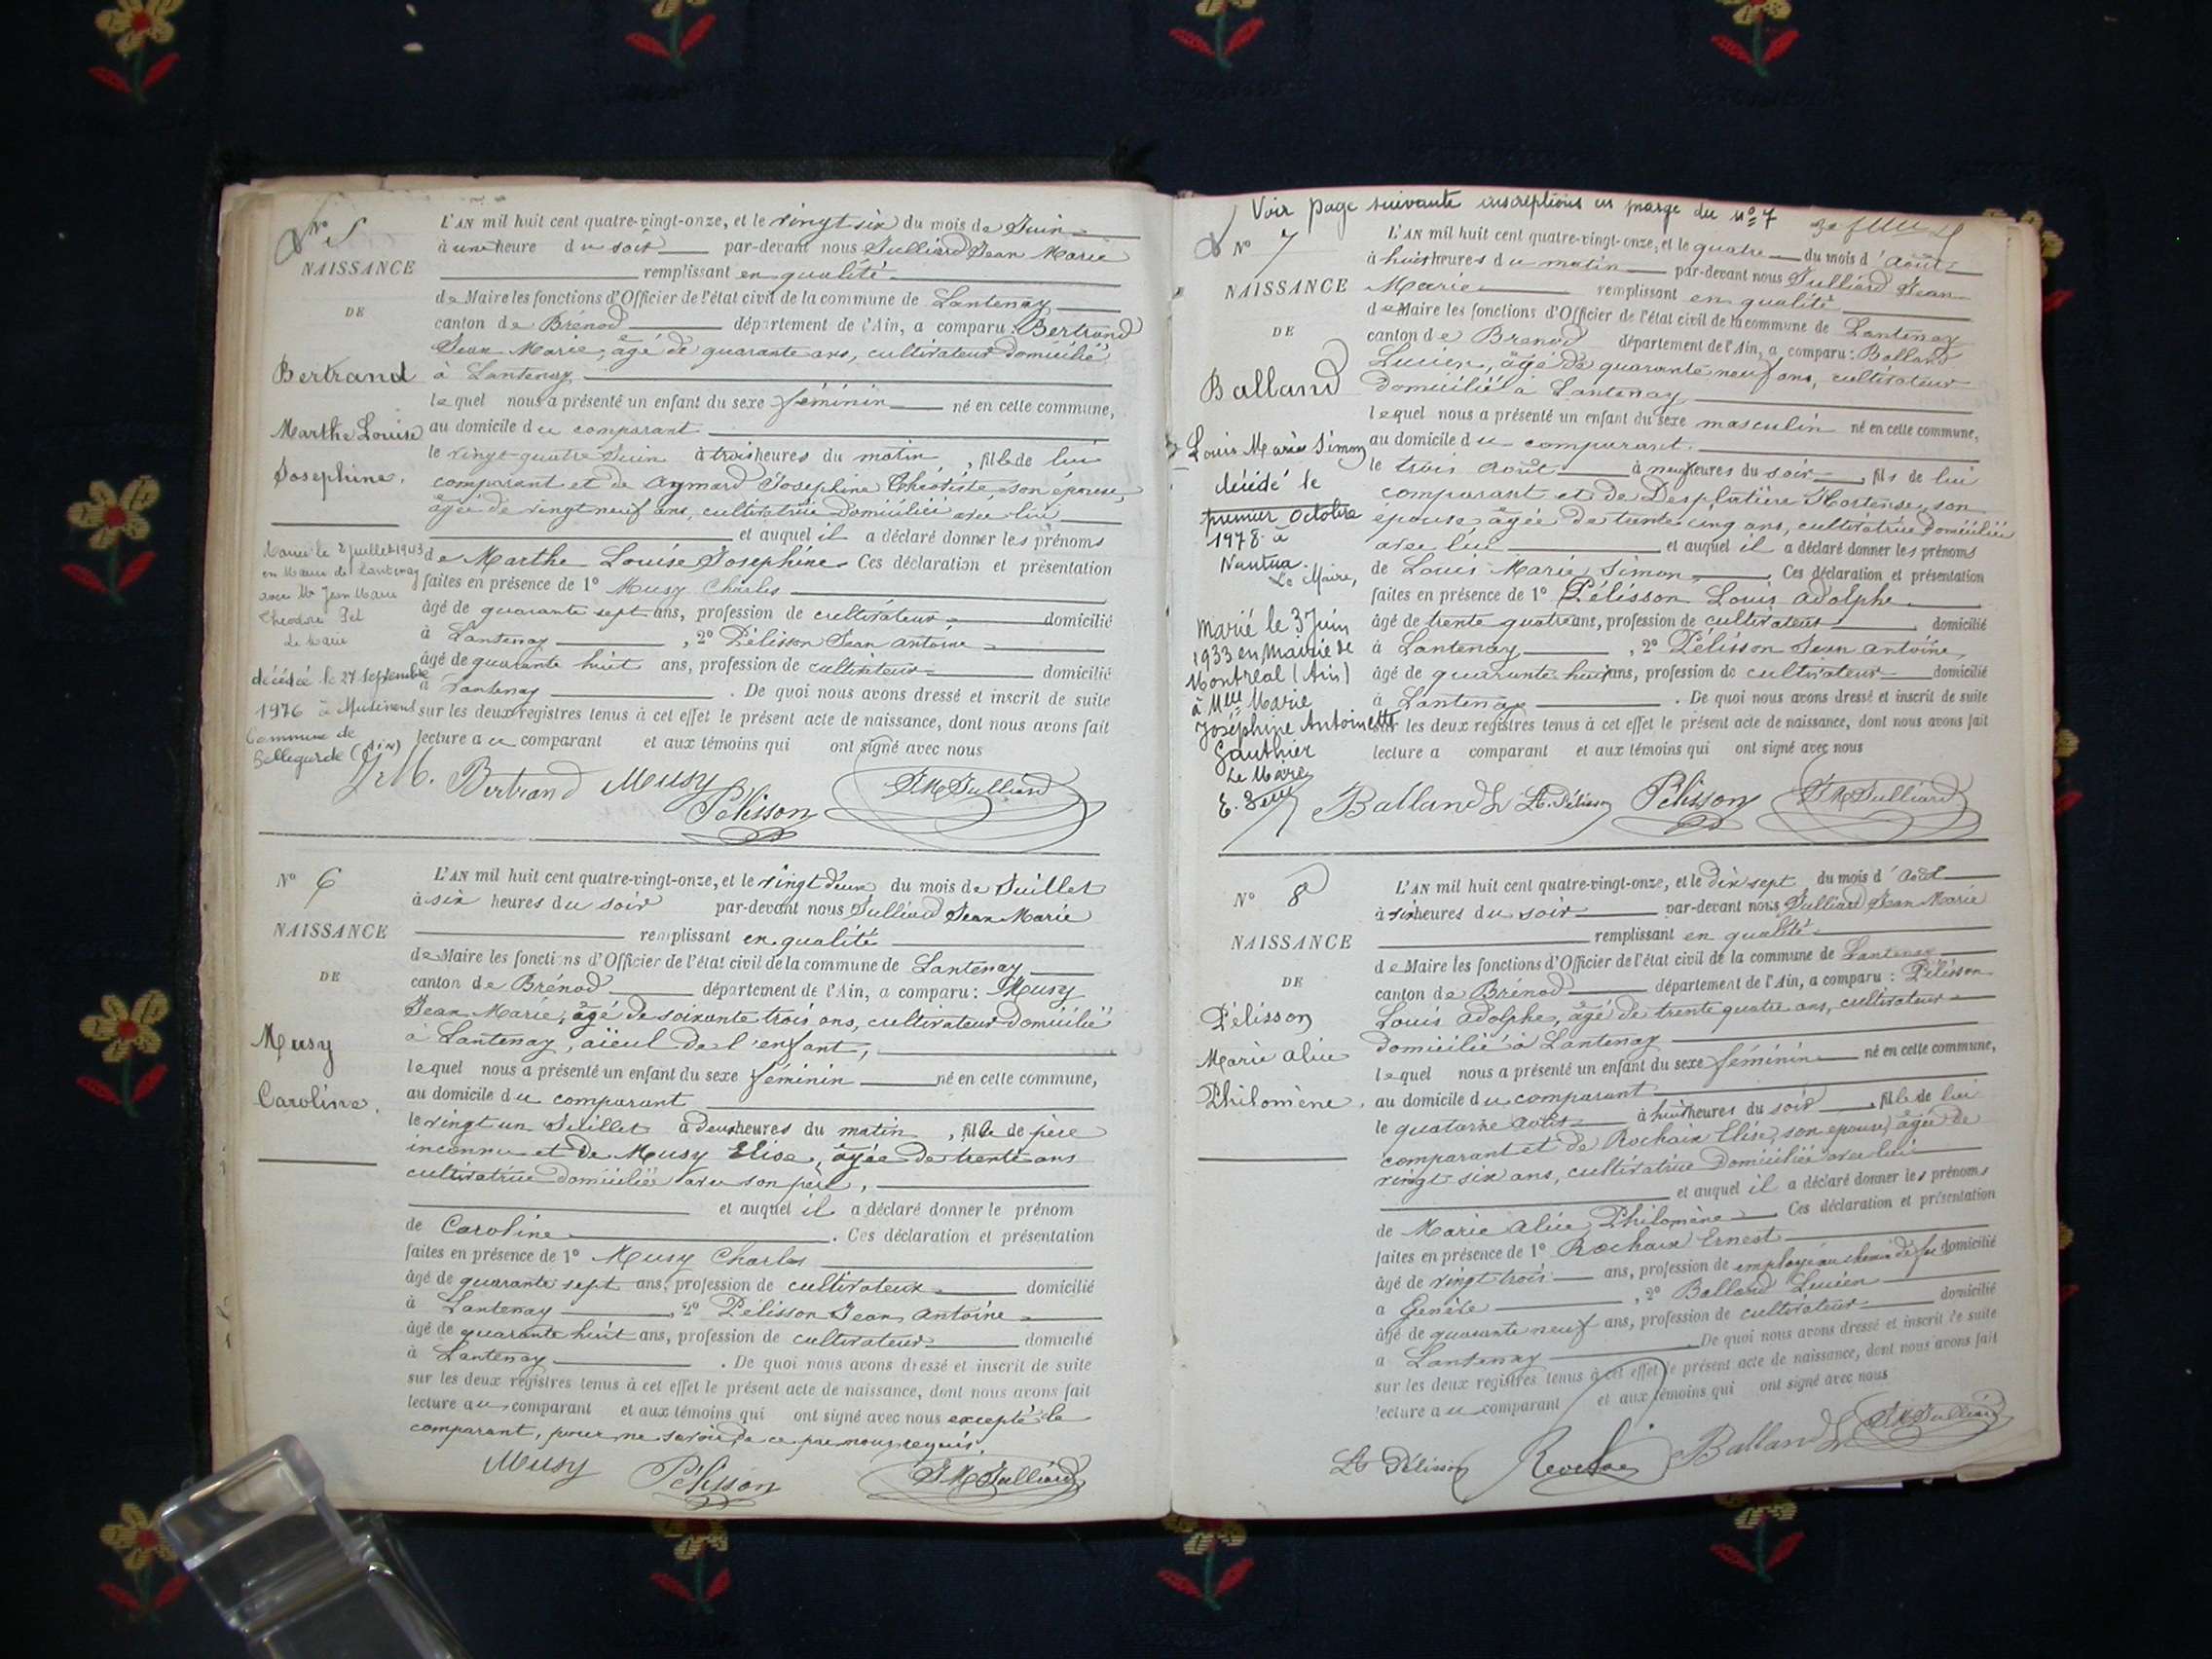 N° 5
NAISSANCE
DE
Bertrand
Marthe Louise
Josephine.
Mariée le 2 juillet 1913
en Mairie de Lantenay
avec Mr Jean Marie
Théodore
Le Maire
décédée le 27 septembre
1976 à Musinens
Commune de
Bellegarde (Ain)
L'AN mil huit cent quatre-vingt-onze, et le vingt six du mois de Juin
à une heure du soir par-devant nous Julliard Jean Marie
remplissant en qualité
de Maire les fonctions d'Officier de l'état civil de la commune de Lantenay
canton de Brénod département de l'Ain, a comparu : Bertrand
Jean Marie, âgé de quarante ans, cultivateur domicilié
à Lantenay
lequel nous a présenté un enfant du sexe féminin né en cette commune,
au domicile du comparant
le vingt-quatre Juin à trois heures du matin, fille de lui
comparant et de Aymard Josephine Théotiste, son épouse,
âgée de vingt neuf ans, cultivatrice domiciliée avec lui
et auquel il a déclaré donner les prénoms
de Marthe Louise Josephine. Ces déclaration et présentation
faites en présence de 1° Musy Charles
âgé de quarante sept ans, profession de cultivateur domicilié
à Lantenay, 2° Pélisson Jean Antoine
âgé de quarante huit ans, profession de cultivateur domicilié
à Lantenay. De quoi nous avons dressé et inscrit de suite
sur les deux registres tenus à cet effet le présent acte de naissance, dont nous avons fait
lecture au comparant et aux témoins qui ont signé avec nous
J M. Bertrand Musy Pélisson J M Julliard
N° 6
NAISSANCE
DE
Musy
Caroline.
L'AN mil huit cent quatre-vingt-onze, et le vingt deux du mois de Juillet
à six heures du soir par-devant nous Julliard Jean Marie
remplissant en qualité
de Maire les fonctions d'Officier de l'état civil de la commune de Lantenay
canton de Brénod département de l'Ain, a comparu : Musy
Jean Marie, âgé de soixante trois ans, cultivateur domicilié
à Lantenay, aïeul de l'enfant,
lequel nous a présenté un enfant du sexe féminin né en cette commune,
au domicile du comparant
le vingt un Juillet à deux heures du matin, fille de père
inconnu et de Musy Elise, âgée de trente ans
cultivatrice domiciliée avec son père,
et auquel il a déclaré donner le prénom
de Caroline. Ces déclaration et présentation
faites en présence de 1° Musy Charles
âgé de quarante sept ans, profession de cultivateur domicilié
à Lantenay, 2° Pélisson Jean Antoine
âgé de quarante huit ans, profession de cultivateur domicilié
à Lantenay. De quoi nous avons dressé et inscrit de suite
sur les deux registres tenus à cet effet le présent acte de naissance, dont nous avons fait
lecture au comparant et aux témoins qui ont signé avec nous excepté le
comparant, pour ne savoir, de ce par nous requis.
Musy Pélisson J M Julliard
Voir page suivante inscriptions en marge du n° 7
N° 7
NAISSANCE
DE
Balland
Louis Marie Simon
décédé le
premier Octobre
1978 à
Nantua.
Le Maire,
Marié le 3 Juin
1933 en Mairie de
Montréal (Ain)
à Melle Marie
Joséphine Antoinette
Gauthier
Le Maire
L'AN mil huit cent quatre-vingt-onze, et le quatre du mois d'Août
à huit heures du matin par-devant nous Julliard Jean
Marie remplissant en qualité
de Maire les fonctions d'Officier de l'état civil de la commune de Lantenay
canton de Brenod département de l'Ain, a comparu : Balland
Lucien, âgé de quarante neuf ans, cultivateur
domicilié à Lantenay
lequel nous a présenté un enfant du sexe masculin né en cette commune,
au domicile du comparant.
le trois Août à neuf heures du soir, fils de lui
comparant et de Desplatière Hortense, son
épouse, âgée de trente cinq ans, cultivatrice domiciliée
avec lui et auquel il a déclaré donner les prénoms
de Louis Marie Simon. Ces déclaration et présentation
faites en présence de 1° Pélisson Louis Adolphe
âgé de trente quatre ans, profession de cultivateur domicilié
à Lantenay, 2° Pélisson Jean Antoine,
âgé de quarante huit ans, profession de cultivateur domicilié
à Lantenay. De quoi nous avons dressé et inscrit de suite
sur les deux registres tenus à cet effet le présent acte de naissance, dont nous avons fait
lecture a comparant et aux témoins qui ont signé avec nous
Balland L LA. Pélisson Pélisson J M Julliard
N° 8
NAISSANCE
DE
Pélisson
Marie Alice
Philomène.
L'AN mil huit cent quatre-vingt-onze, et le dix sept du mois d'Août
à six heures du soir par-devant nous Julliard Jean Marie
remplissant en qualité
de Maire les fonctions d'Officier de l'état civil de la commune de Lantenay
canton de Brénod département de l'Ain, a comparu : Pélisson
Louis Adolphe, âgé de trente quatre ans, cultivateur
domicilié à Lantenay
lequel nous a présenté un enfant du sexe féminin né en cette commune,
au domicile du comparant
le quatorze Août à huit heures du soir, fille de lui
comparant et de Rochaix Elise, son épouse, âgée de
vingt six ans, cultivatrice domiciliée avec lui
et auquel il a déclaré donner les prénoms
de Marie Alice Philomène. Ces déclaration et présentation
faites en présence de 1° Rochaix Ernest
âgé de vingt trois ans, profession de employé au chemin de fer domicilié
à Genève, 2° Balland Lucien
âgé de quarante neuf ans, profession de cultivateur domicilié
à Lantenay. De quoi nous avons dressé et inscrit de suite
sur les deux registres tenus à cet effet le présent acte de naissance, dont nous avons fait
lecture au comparant et aux témoins qui ont signé avec nous
LA Pélisson Balland L J M Julliard